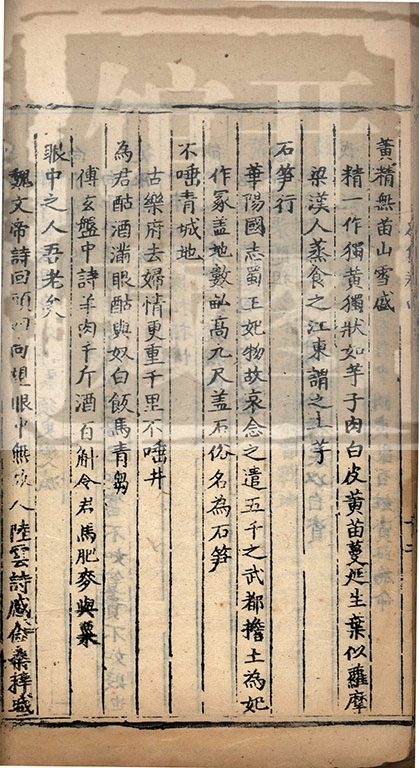 黃精無苗山雪盛
精一作獨黃獨狀如芋子肉白皮黃苗蔓延生葉似蘿摩
梁漢人蒸食之江東謂之土芋
石笋行
華陽國志蜀王妃物故哀念之遣五千之武都擔土為妃
作冢盖地數畝高九尺盖石俗名為石笋
不唾青城地
古樂府去婦情更重千里不唾井
為君酤酒滿眼酤與奴白飯馬青芻
傅玄盤中詩羊肉千斤酒百斛令君馬肥麥與粟
眼中之人吾老矣
魏文帝詩回頭四向望眼中無故人陸雲詩感念桑梓域